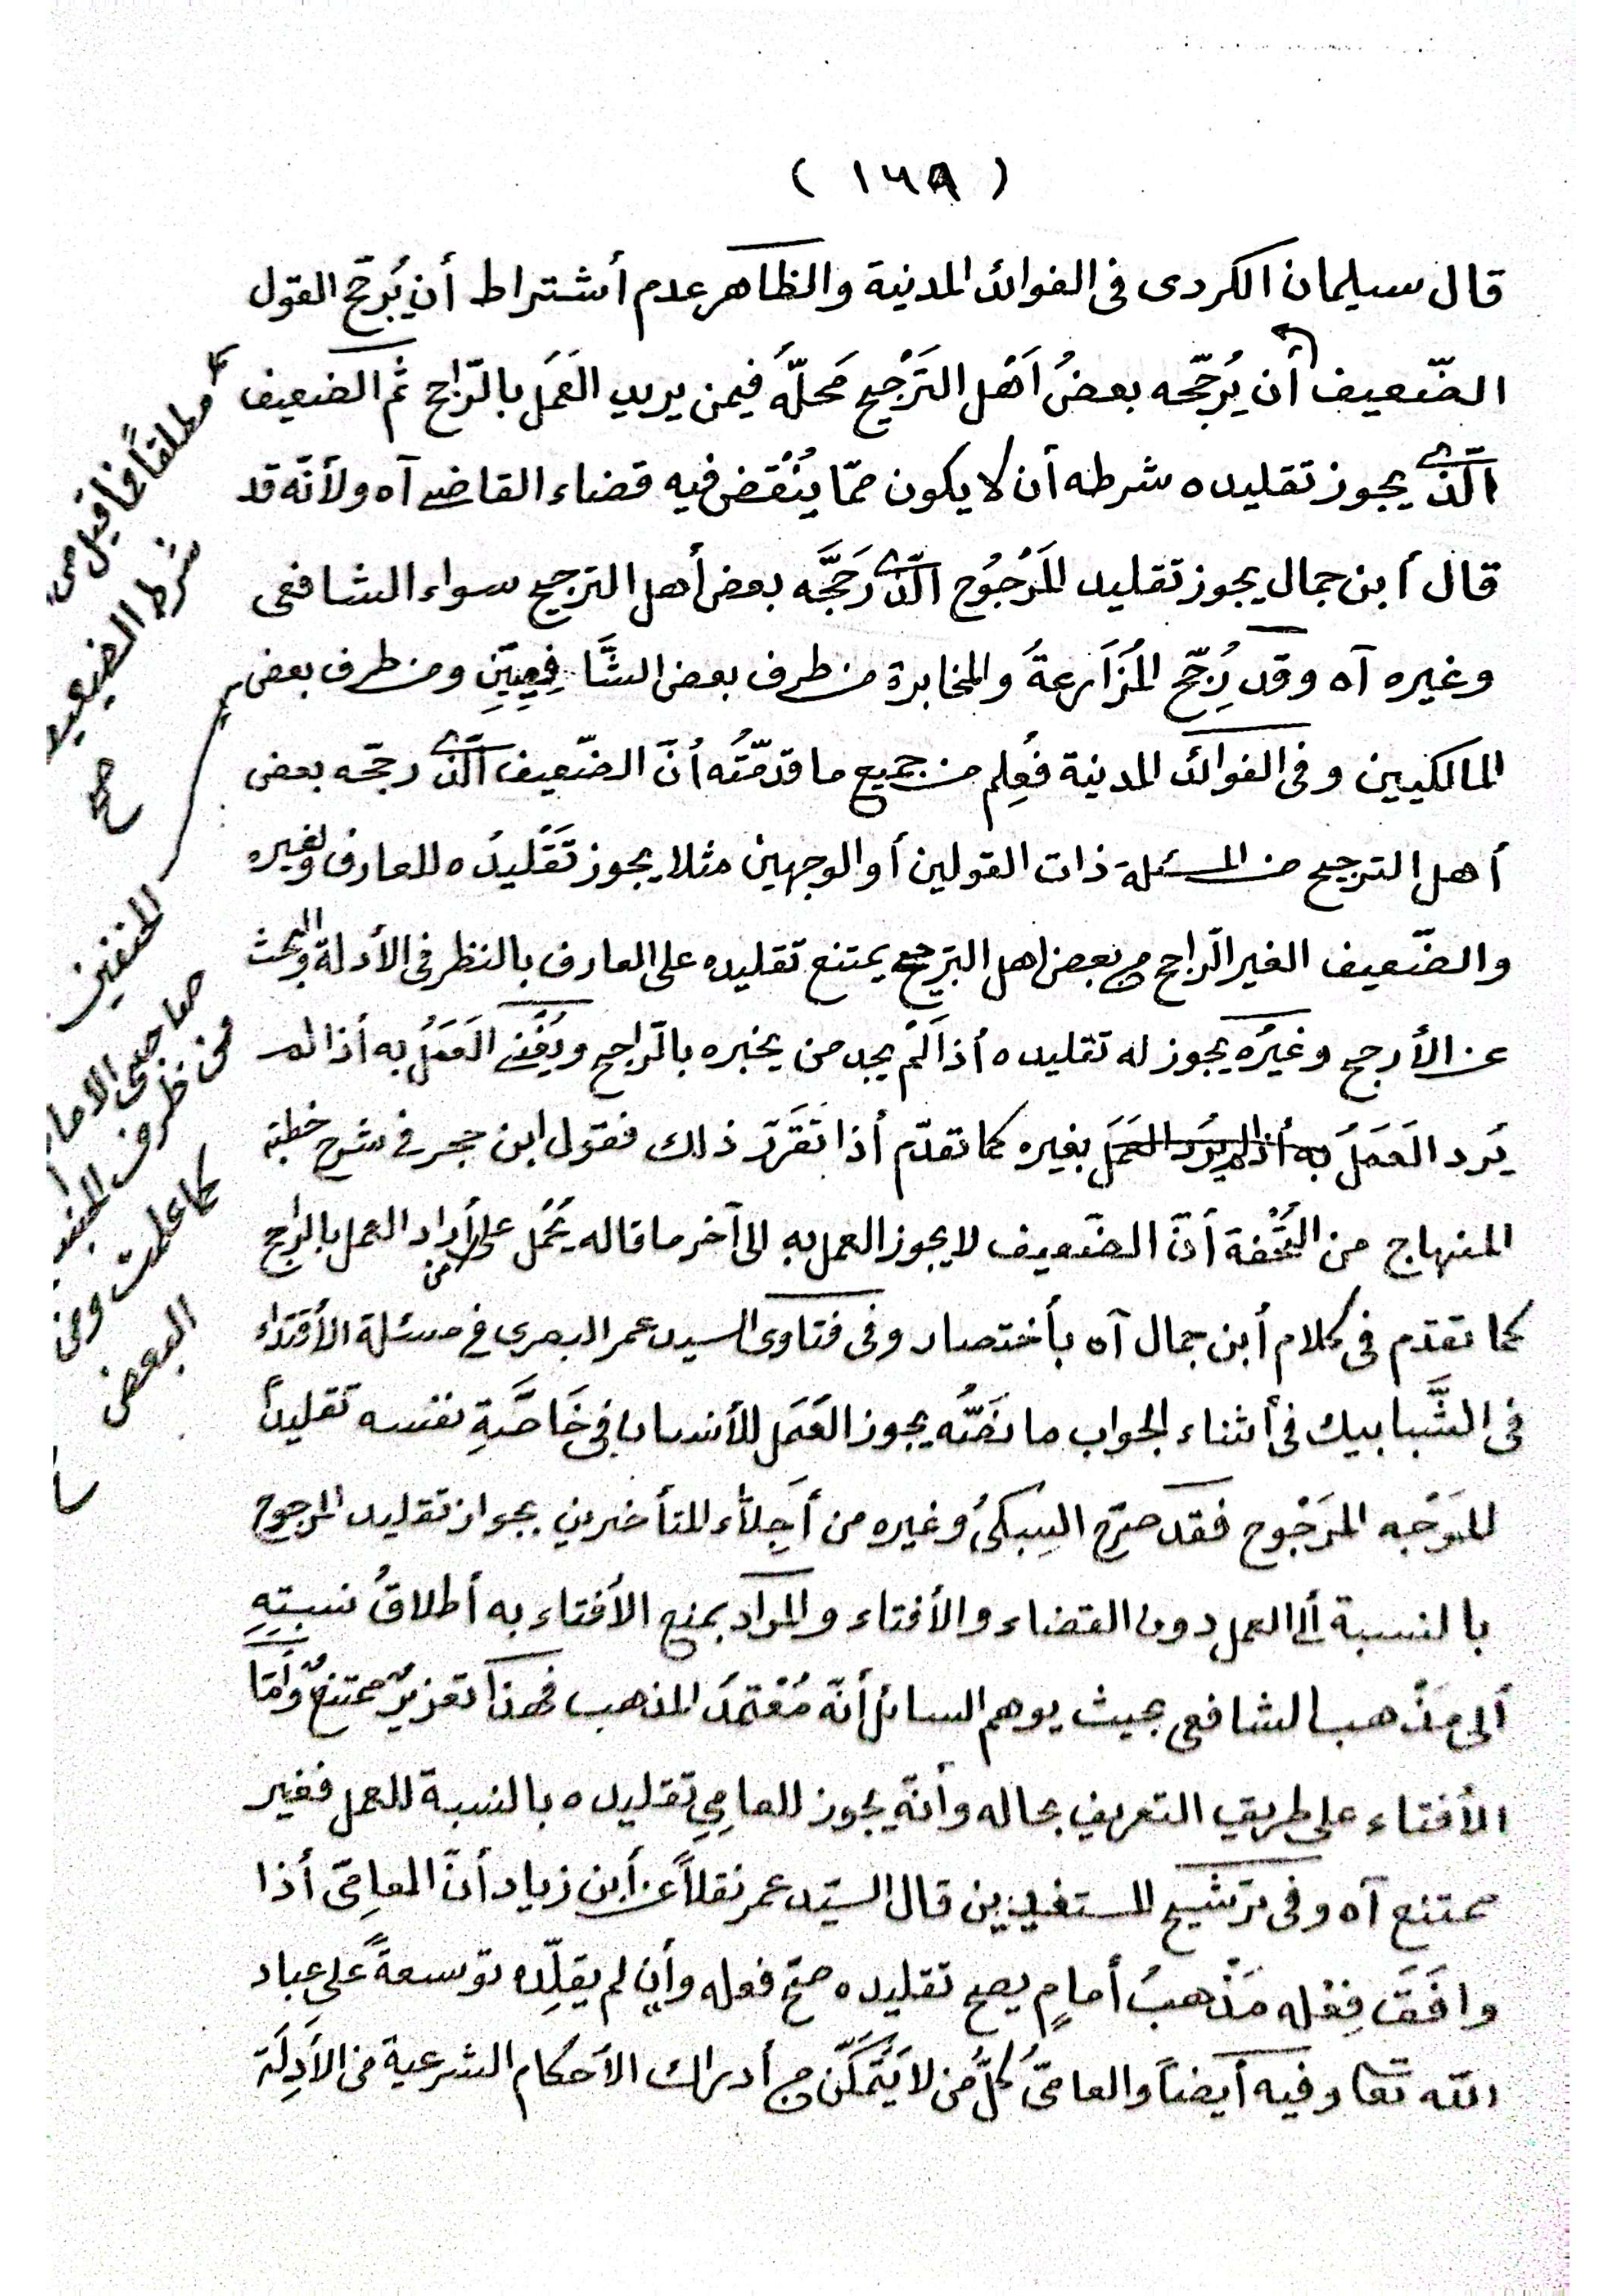 ( ١٦٨ )
قال سليمان الكردى فى الفوائد المدنية والظاهر عدم أشتراط أن يُرجّح القول
الضّعيف أن يُرجّحه بعضُ اَهْل التَرْجيح مَحلّهُ فيمن يريد العَمَل بالرّاجح ثم الضعيف
الّذى يجوز تقليده شرطه أن لا يكون ممّا يُنْقَض فيه قضاء القاضى آه ولأنّه قد
قال أبن جمال يجوز تقليد المَرْجُوح الّذى رَجَّحَه بعض أهل الترجيح سواء الشافعى
وغيره آه وقد رُجِّح المُزَارعةُ والمخابرة من طرف بعض الشَّافِعِيِّيَن ومن طرف بعض
المالكيين وفى الفوائد المدنية فعُلِم من جميع ما قدمّتُه أنّ الضّعيف الّذى رجّحه بعض
أهل الترجيح من المسئلة ذات القولين أو الوجهين مثلا يجوز تَقْليدُه للعارف ولغيره
والضّعيف الغير الرّاجح من بعض اهل الترجيح يمتنع تقليده على العارف بالنظر فى الأدلة والبحث
عن الأرجح وغيرُه يجوز له تقليده أذا لَمْ يجد من يخبره بالرّاجح ويُفْتى العَمَلُ به أذا لم
يُرد العَمَلُ به أذا لم يرد العمل بغيره كما تقدّم أذا تَقَرّر ذلك فقول ابن حجر فى شرح خطبة
المنهاج من التُّحْفة أنّ الضّعيف لا يجوز العمل به الى آخر ما قاله يُحْمَل على من أراد العمل بالراجح
كما تقدّم فى كلام أبن جمال آه بأختصار وفى فتاوى السيد عمر البصرى فى مسئلة الأقتداء
فى الشَّبابيك فى أثناء الجواب ما نَصُّه يجوز العَمَل للأنسان فى خَاصَّةِ نفسه تقليداً
للوَجْه المَرْجُوح فقد صرّح السبكىُ وغيره من أَجِلّاْء المتأخرين بجواز تقليد المرجوح
بالنسبة ألى العمل دون القضاء والأفتاء والمراد بمنع الأفتاء به أطلاقُ نسبتِهِ
ألى مَذْهب الشافعى بحيث يوهم السائل أنّه مُعْتمَدُ المذهب فهذا تغريرٌ ممتنعٌ وأمّا
الأفتاء على طريق التعريف بحاله وأنّه يجوز للعامِىِ تقليده بالنسبة للعمل فغير
ممتنع آه وفى ترشيح المستفيدين قال السيّد عمر نقلاً عن أبن زياد أنّ العامِىّ أذا
وافَقَ فِعْله مَذْهبُ أمامٍ يصح تقليده صحّ فعله وأن لم يقلِّده توسعةً على عباد
الله تعا وفيه أيضاً والعامىّ كُلُّ مَن لا يَتَمَكّن من أدراك الأحكام الشرعية من الأَدِلّة
مطلقاً فما قيل من
شرط الضعيف
صح
صاحبى الامام
كما علمت ومن
البعض